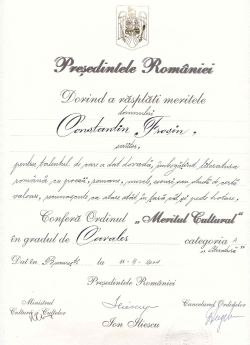 Președintele României
Dorind a răsplăti meritele
domnului
Constantin Frosin,
scriitor,
pentru talentul de care a dat dovadă, îmbogățind literatura
română cu proză, romane, nuvele, eseuri, sau studii de certă
valoare, recunoscute ca atare atât în țară, cât și peste hotare,
Conferă Ordinul „Meritul Cultural"
în gradul de Cavaler categoria A
„Literatură"
Dat în București la
Președintele României
Ministrul
Culturii și Cultelor
Cancelarul Ordinelor
Ion Iliescu